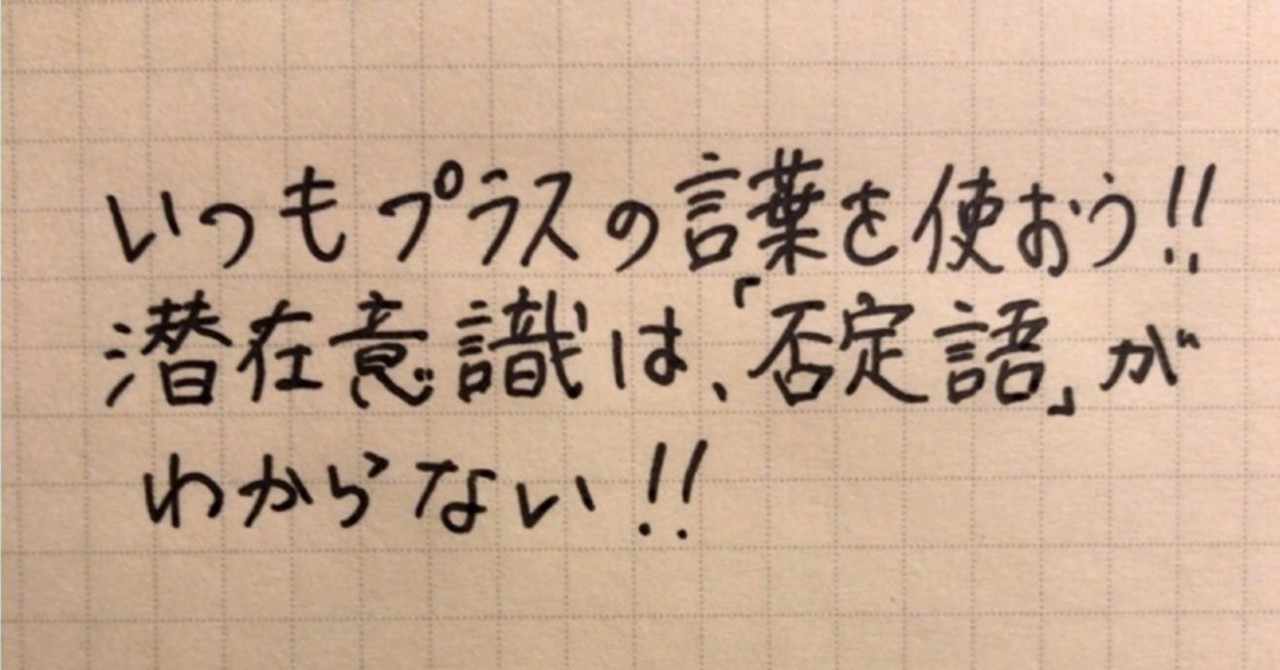 いつもプラスの言葉を使おう!!
潜在意識は、「否定語」が
わからない!!